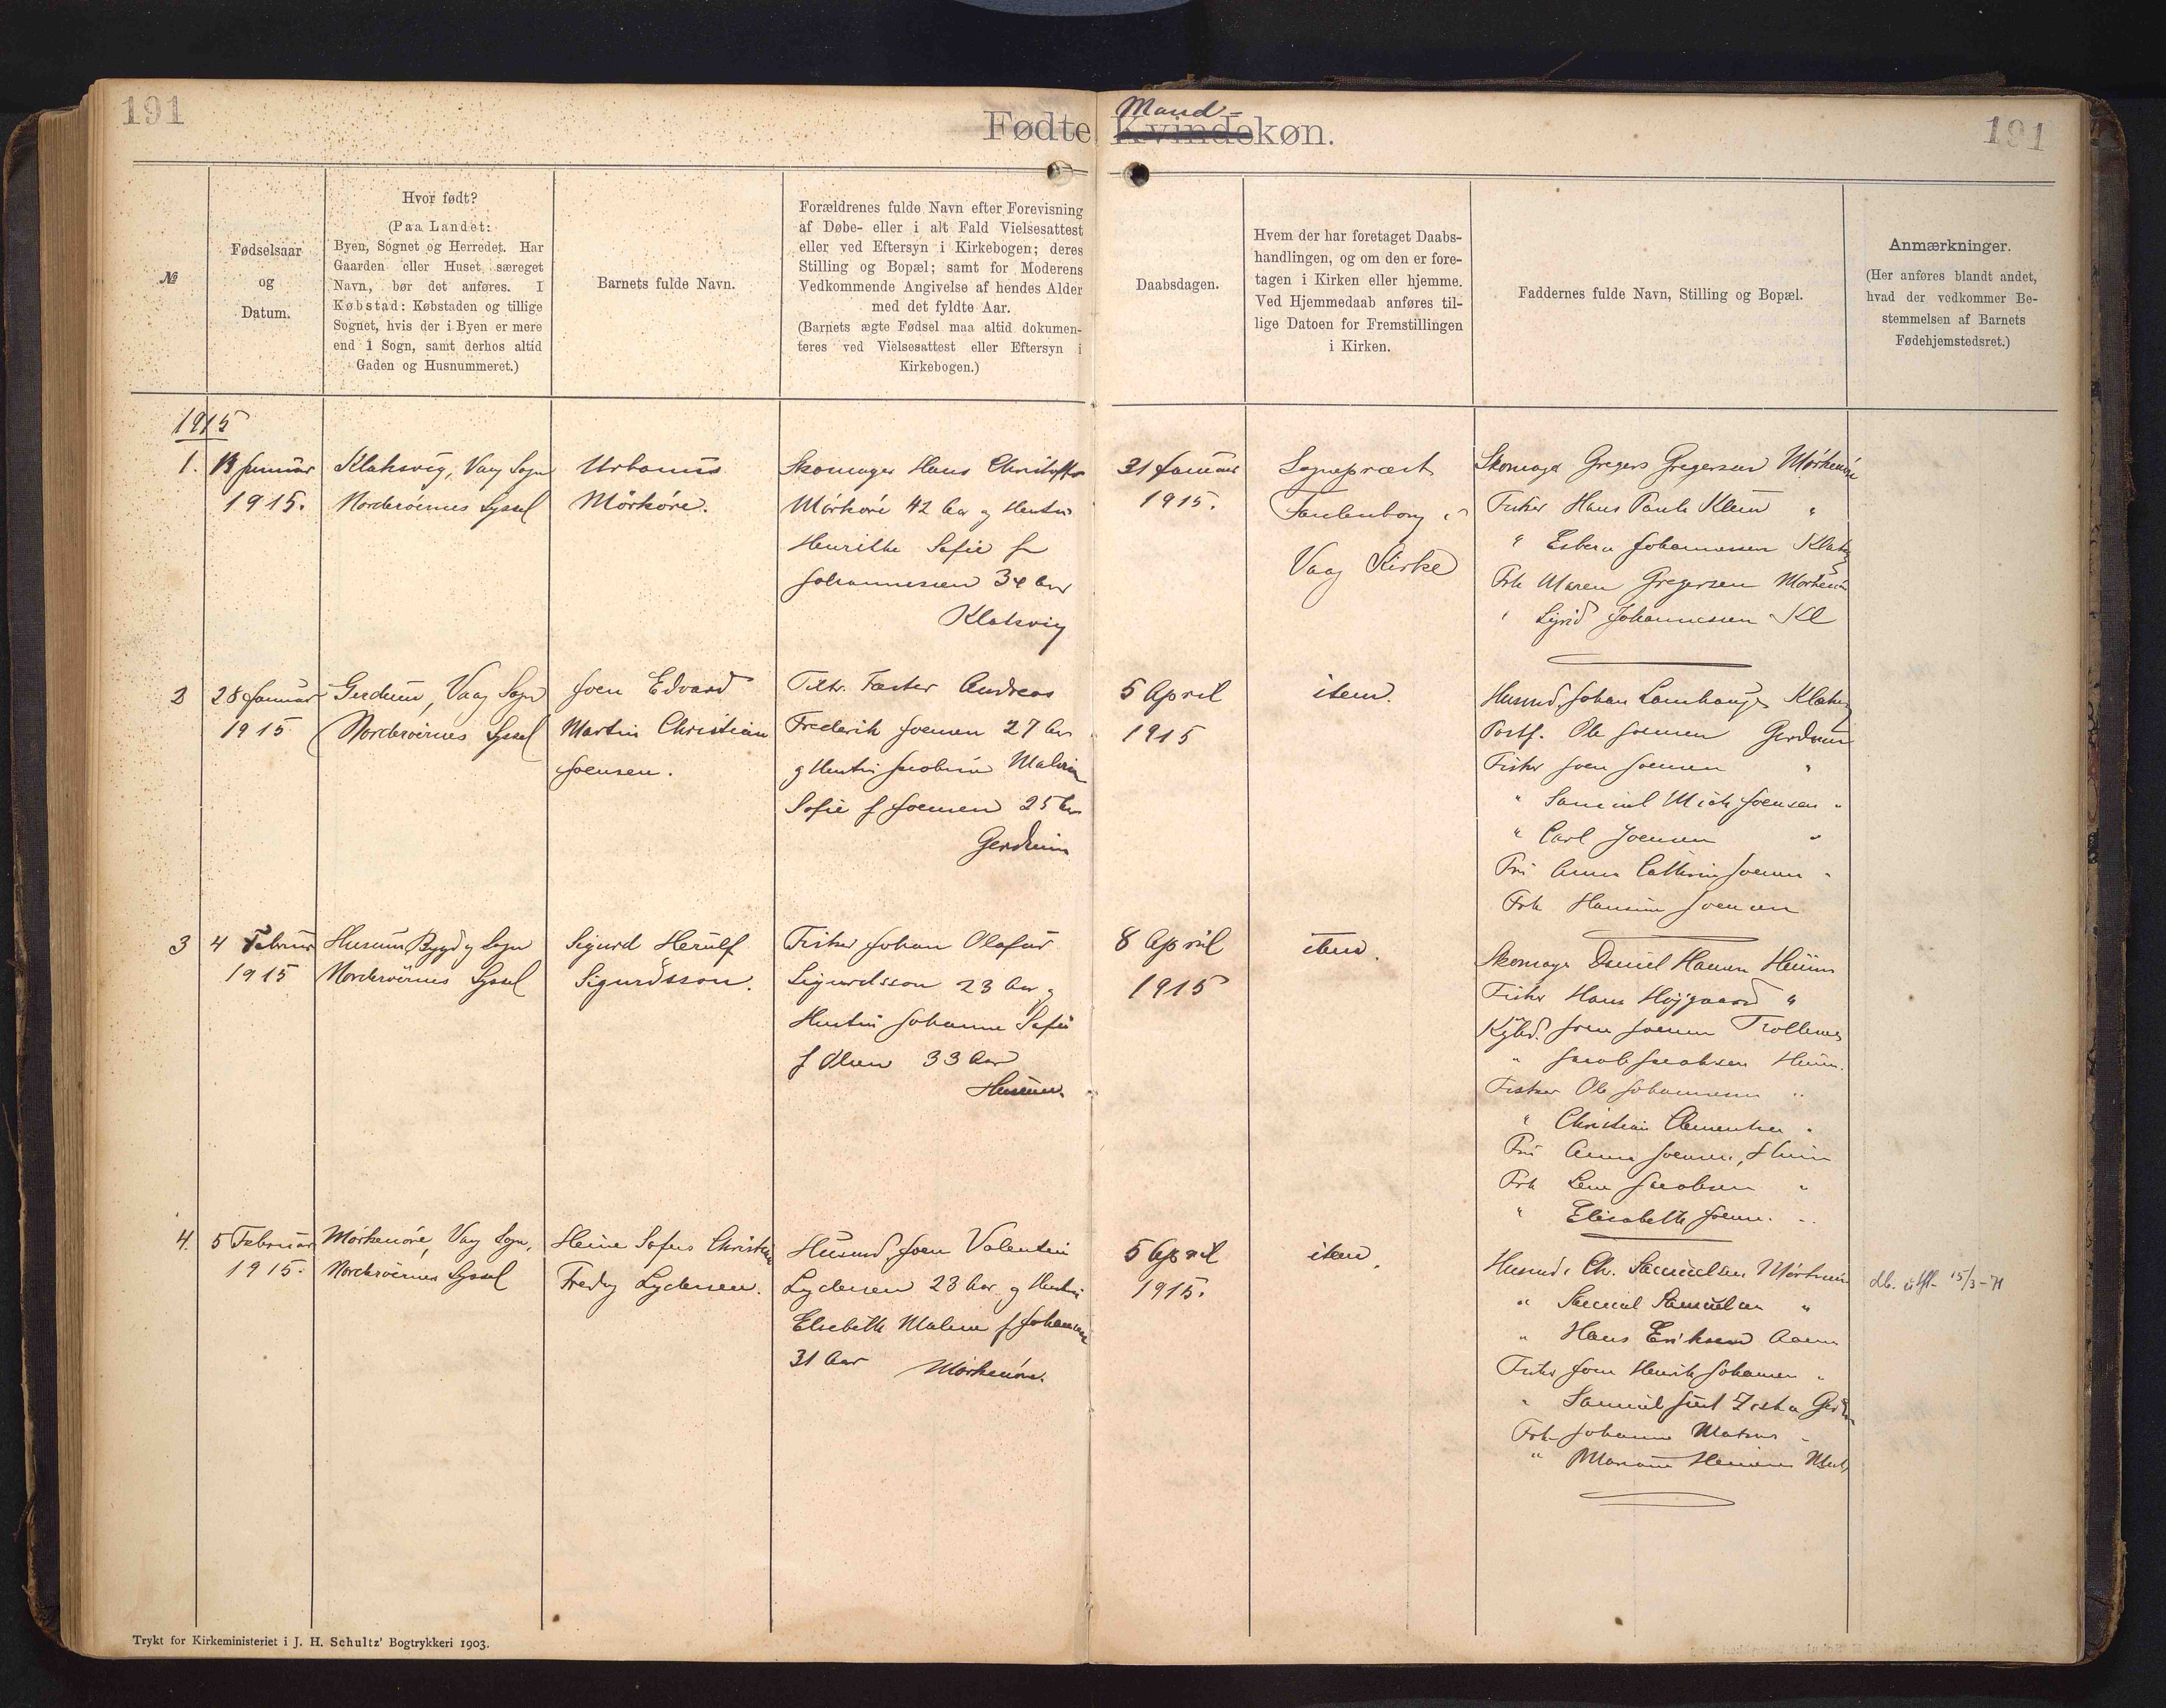 191
Fødte Kvindekøn.
Mand-
191
№
Fødselsaar
og
Datum.
Hvor født?
(Paa Landet:
Byen, Sognet og Herredet. Har
Gaarden eller Huset særeget
Navn, bør det anføres. I
Købstad: Købstaden og tillige
Sognet, hvis der i Byen er mere
end 1 Sogn, samt derhos altid
Gaden og Husnummeret.)
Barnets fulde Navn.
Forældrenes fulde Navn efter Forevisning
af Døbe- eller i alt Fald Vielsesattest
eller ved Eftersyn i Kirkebogen; deres
Stilling og Bopæl; samt for Moderens
Vedkommende Angivelse af hendes Alder
med det fyldte Aar.
(Barnets ægte Fødsel maa altid dokumen-
teres ved Vielsesattest eller Eftersyn i
Kirkebogen.)
Daabsdagen.
Hvem der har foretaget Daabs-
handlingen, og om den er fore-
tagen i Kirken eller hjemme.
Ved Hjemmedaab anføres til-
lige Datoen for Fremstillingen
i Kirken.
Faddernes fulde Navn, Stilling og Bopæl.
Anmærkninger.
(Her anføres blandt andet,
hvad der vedkommer Be-
stemmelsen af Barnets
Fødehjemstedsret.)
1915
1.
Januar
1915.
Klaksvig, Vaag Sogn
Norderöernes Syssel
Urbanus
Mörköre.
Skomager Hans Christoffer
Mörköre 42 Aar og Hustru
Henrikke Sofie f
Johannessen 34 Aar
Klaksvig
31 Januar
1915.
Sognepræst
Faulenborg i
Vaag Kirke
Skomager Gregers Gregersen Mörkenöre
Fisker Hans Pauli Klein "
" Esbern Johannessen Klaksv
Frk Maren Gregersen Mörkenöre
" Sigrid Johannessen Kl
2
28 Januar
1915
Gerdum, Vaag Sogn
Norderöernes Syssel
Joen Edvard
Martin Christian
Joensen.
Fæster Andreas
Frederik Joensen 27 Aar
og Hustru Jacobine Malvina
Sofie f Joensen 25 Aar
Gerdum
5 April
1915
item.
Husmd. Johan Lamhauge Klaksv
Postf. Ole Joensen Gerdum
Fisker Joen Joensen "
" Samuel Mich Joensen "
" Carl Joensen "
Fru Anna Cathrine Joensen "
Frk Hansine Joensen
3
4 Februar
1915
Husum Bygd og Sogn
Norderöernes Syssel
Sigurd Herulf
Sigurdsson.
Fisker Johan Olafur
Sigurdsson 23 Aar og
Hustru Johanne Sofie
f Olsen 33 Aar
Husum.
8 April
1915
item.
Skomager Daniel Hansen Husum
Fisker Hans Höjgaard "
Joen Joensen Trollenes
" Jacob Jacobsen Husum.
Fisker Ole Johannesen "
" Christian Clementsen "
Fru Anna Joensen, Husum
Frk Lena Jacobsen "
" Elisabeth Joens. "
4.
5 Februar
1915.
Mörkenöre, Vaag Sogn,
Norderöernes Syssel
Heine Sofus Christian
Fredy Lydersen.
Husmd. Joen Valentin
Lydersen 23 Aar og Hustru
Elsebeth Malene f Johannesen
31 Aar Mörkenöre.
5 April
1915.
item.
Husmd. Ch. Samuelsen Mörkenöre
" Samuel Samuelsen "
" Hans Eriksen
Fisker Joen Henrik Johansen "
" Samuel
Frk Johanne Matras
"
15/3-71
Trykt for Kirkeministeriet i J. H. Schultz' Bogtrykkeri 1903.